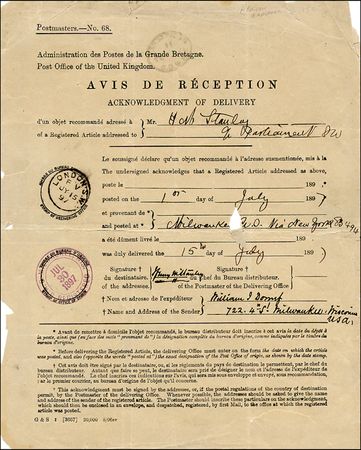 Postmasters.—No. 68.
Administration des Postes de la Grande Bretagne.
Post Office of the United Kingdom.
AVIS DE RÉCEPTION
ACKNOWLEDGMENT OF DELIVERY
d'un objet recommandé adressé à
of a Registered Article addressed to
Mr. H M Stanley
Parliament St SW
Le soussigné déclare qu'un objet recommandé à l'adresse susmentionnée, mis à la
The undersigned acknowledges that a Registered Article addressed as above,
poste le 189
posted on the 1st July 189
et provenant de *
and posted at * Milwaukee U.S. Via New York
a été dûment livré le 189
was duly delivered the 15th of July 189
Signature † du destinataire.
Signature † du Chef du Bureau distributeur.
of the Addressee.
of the Postmaster of the Delivering Office.
‡ Nom et adresse de l'expéditeur
‡ Name and Address of the Sender
William I
722. 4 St. Milwaukee, Wisconsin
USA,
LONDON S.W.
F V
JY 15
97
BUREAU DISTRIBUTEUR
STAMP OF DELIVERING OFFICE
JUL
1897
* Avant de remettre à domicile l'objet recommandé, le bureau distributeur doit inscrire ici et aux avis la date du dépôt à la poste, ainsi que (en face des mots "provenant de") la désignation complète du bureau d'origine, comme indiquées par le timbre du bureau d'origine.
* Before delivering the Registered Article, the delivering office must enter on the form the date on which the article was posted, and also (opposite the words "posted at") the exact designation of the Post Office of origin, as shown by the date stamp.
† Cet avis doit être signé par le destinataire, ou, si les règlements du pays de destination le permettent, par le chef du bureau distributeur.
† This acknowledgment must be signed by the addressee, or, if the regulations of the country of destination permit, by the Postmaster of the Delivering Office. Whenever possible, the addressee should be asked to give the name and address of the sender of the registered article. The Postmaster should insert these particulars on the acknowledgment, which should then be enclosed in an envelope, and despatched, registered, by first Mail, to the office at which the registered article was posted.
G & S 20,000